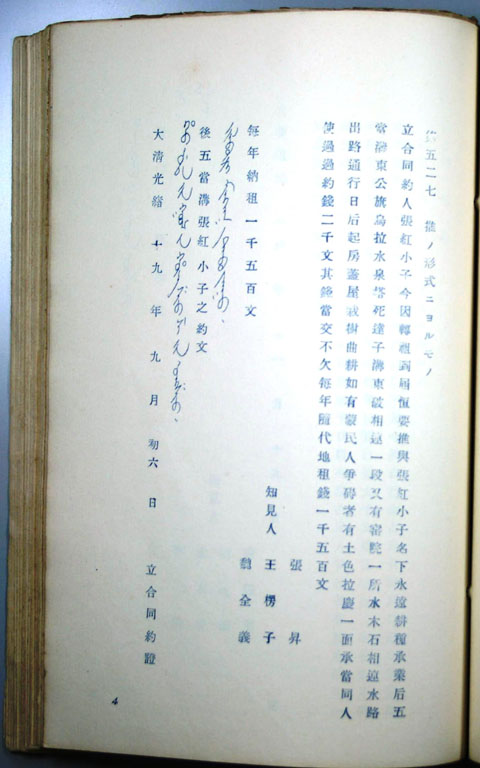 五二七 推ノ形式ニヨルモノ
立合同約人張紅小子今因轉租到屆恒要推與張紅小子名下永遠耕種承業后五
當溝東公旗烏拉水泉塔死達子溝東破相連一段又有窰院一所水木石相連水路
出路通行日后起房蓋屋栽樹曲耕如有蒙民人爭碍者有土色拉慶一面承當同人
使過過約錢二千文其錢當交不欠每年隨代地租錢一千五百文
張昇
知見人 王楞子
魏全義
每年納租一千五百文
後五當溝張紅小子之約文
大清光緒十九年九月初六日 立合同約證
4